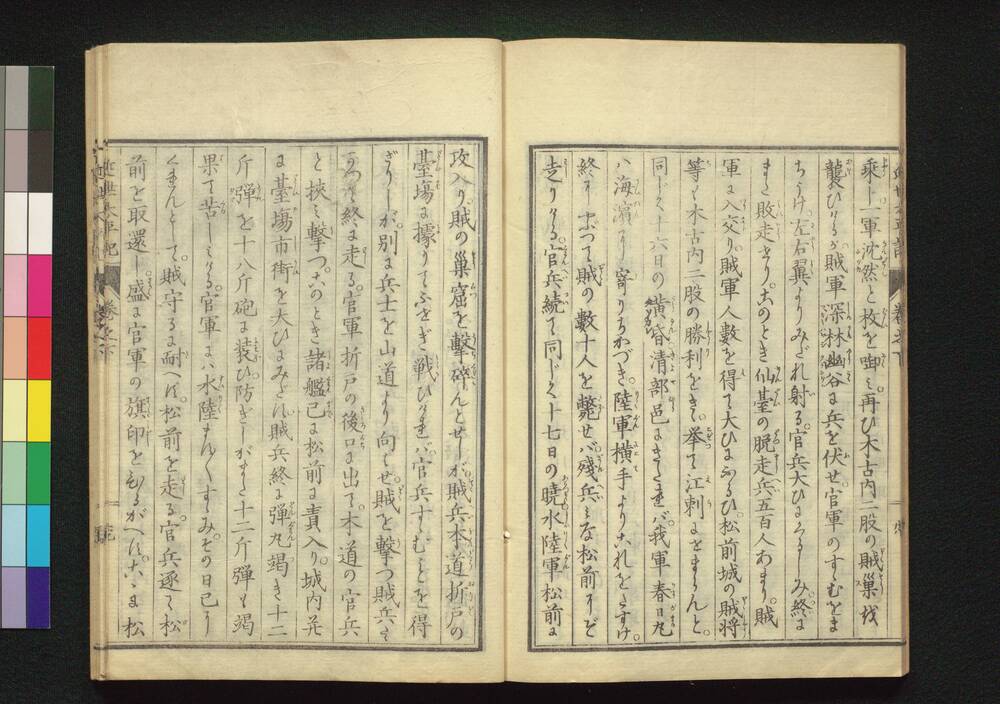 乗じ一軍沈然と枚を啣み再び木古内二股の賊巣を
襲ひけるが賊軍深林幽谷に兵を伏せ官軍のすゝむをま
ちうけ左右翼よりみだれ射る官兵大ひにくるしみ終に
また敗走せりこのとき仙臺の脱走兵五百人あまり賊
軍に入交り賊軍人数を得て大ひにふるひ松前城の賊将
等も木古内二股の勝利をきゝ挙て江刺にせまらんと
同じく十六日の黄昏清部邑にきたれば我軍春日丸
は海濱に寄りちかづき陸軍横手よりこれをたすけ
終に打て賊の数十人を斃せば残兵みな松前にぞ
走りける官兵続て同じく十七日の暁水陸軍松前に
攻入り賊の巣窟を撃碎んとせしが賊兵本道折戸の
臺場に據りてふせぎ戦ひければ官兵すゝむことを得
ざりしが別の兵士を山道より向はせ賊を撃つ賊兵
終に走る官軍折戸の後口に出て本道の官兵
と挟み撃つこのとき諸艦已に松前に責入り城内并
に臺場市街を大ひにみだす賊兵終に弾丸竭き十二
斤弾を十八斤砲に装ひ防ぎしがまた十二斤弾も竭
果て苦しみける官軍は水陸すゝみその日已に
くれんとて賊守るに耐へず松前を走る官兵逐て松
前を取還し盛に官軍の旗印をひるがへすこゝに松
近世太平記 巻之下